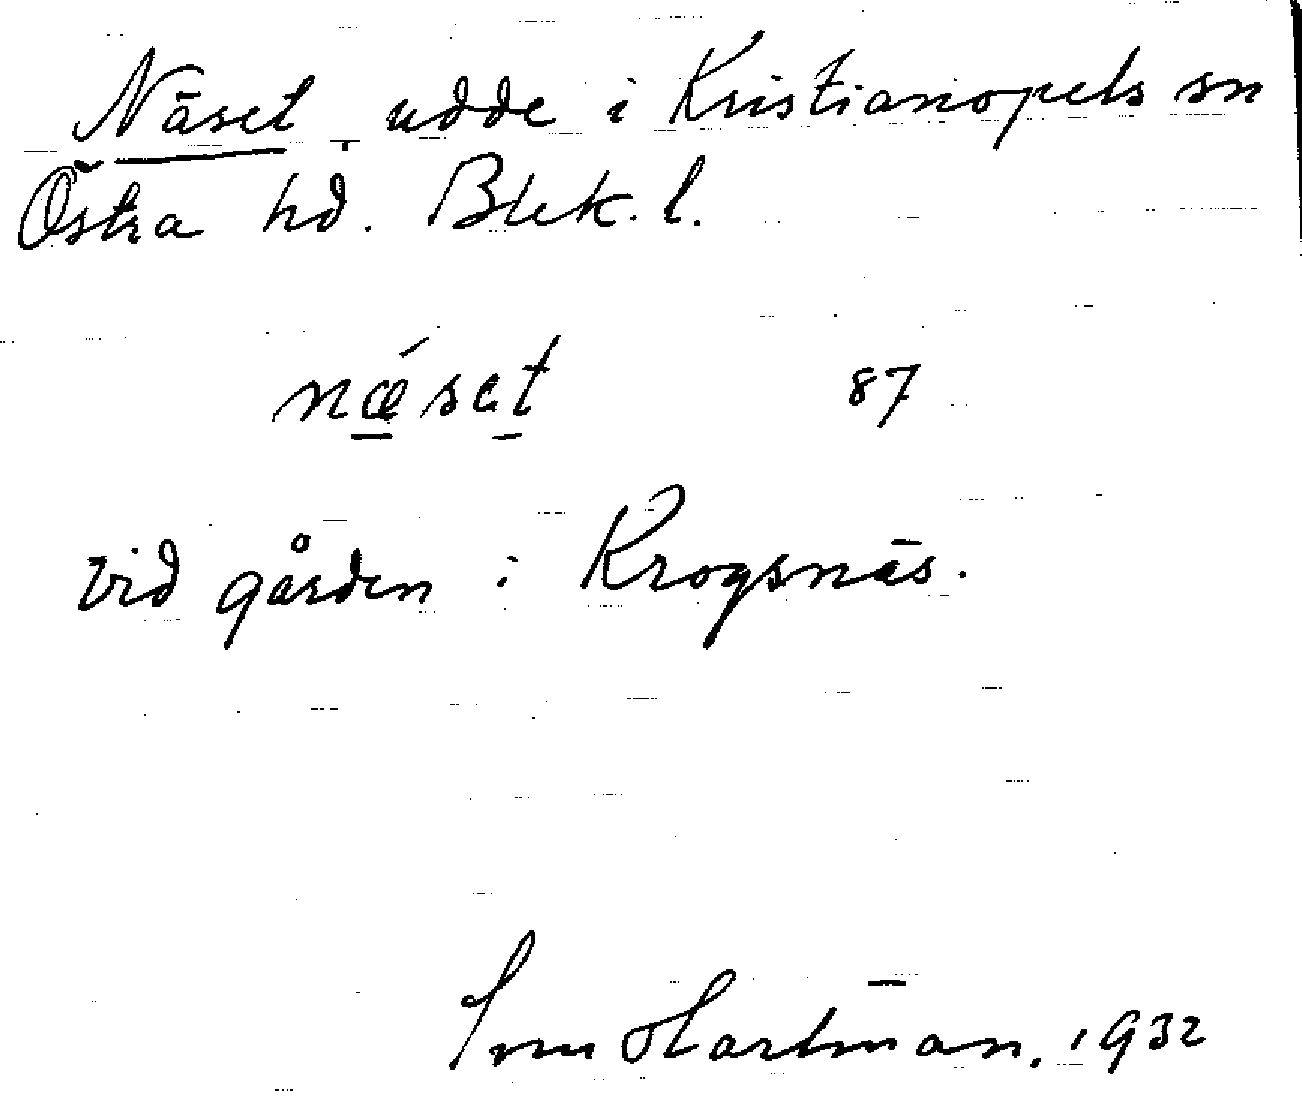 Näset udde i Kristianopels sn
Östra hd. Blek. l.
næset 87
vid gården i Krogsnäs.
Hartman. 1932